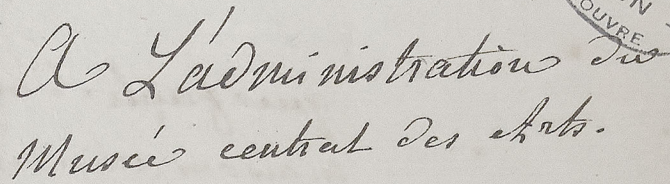 ON
LOUVRE
A L'administration du
Musée central des Arts.